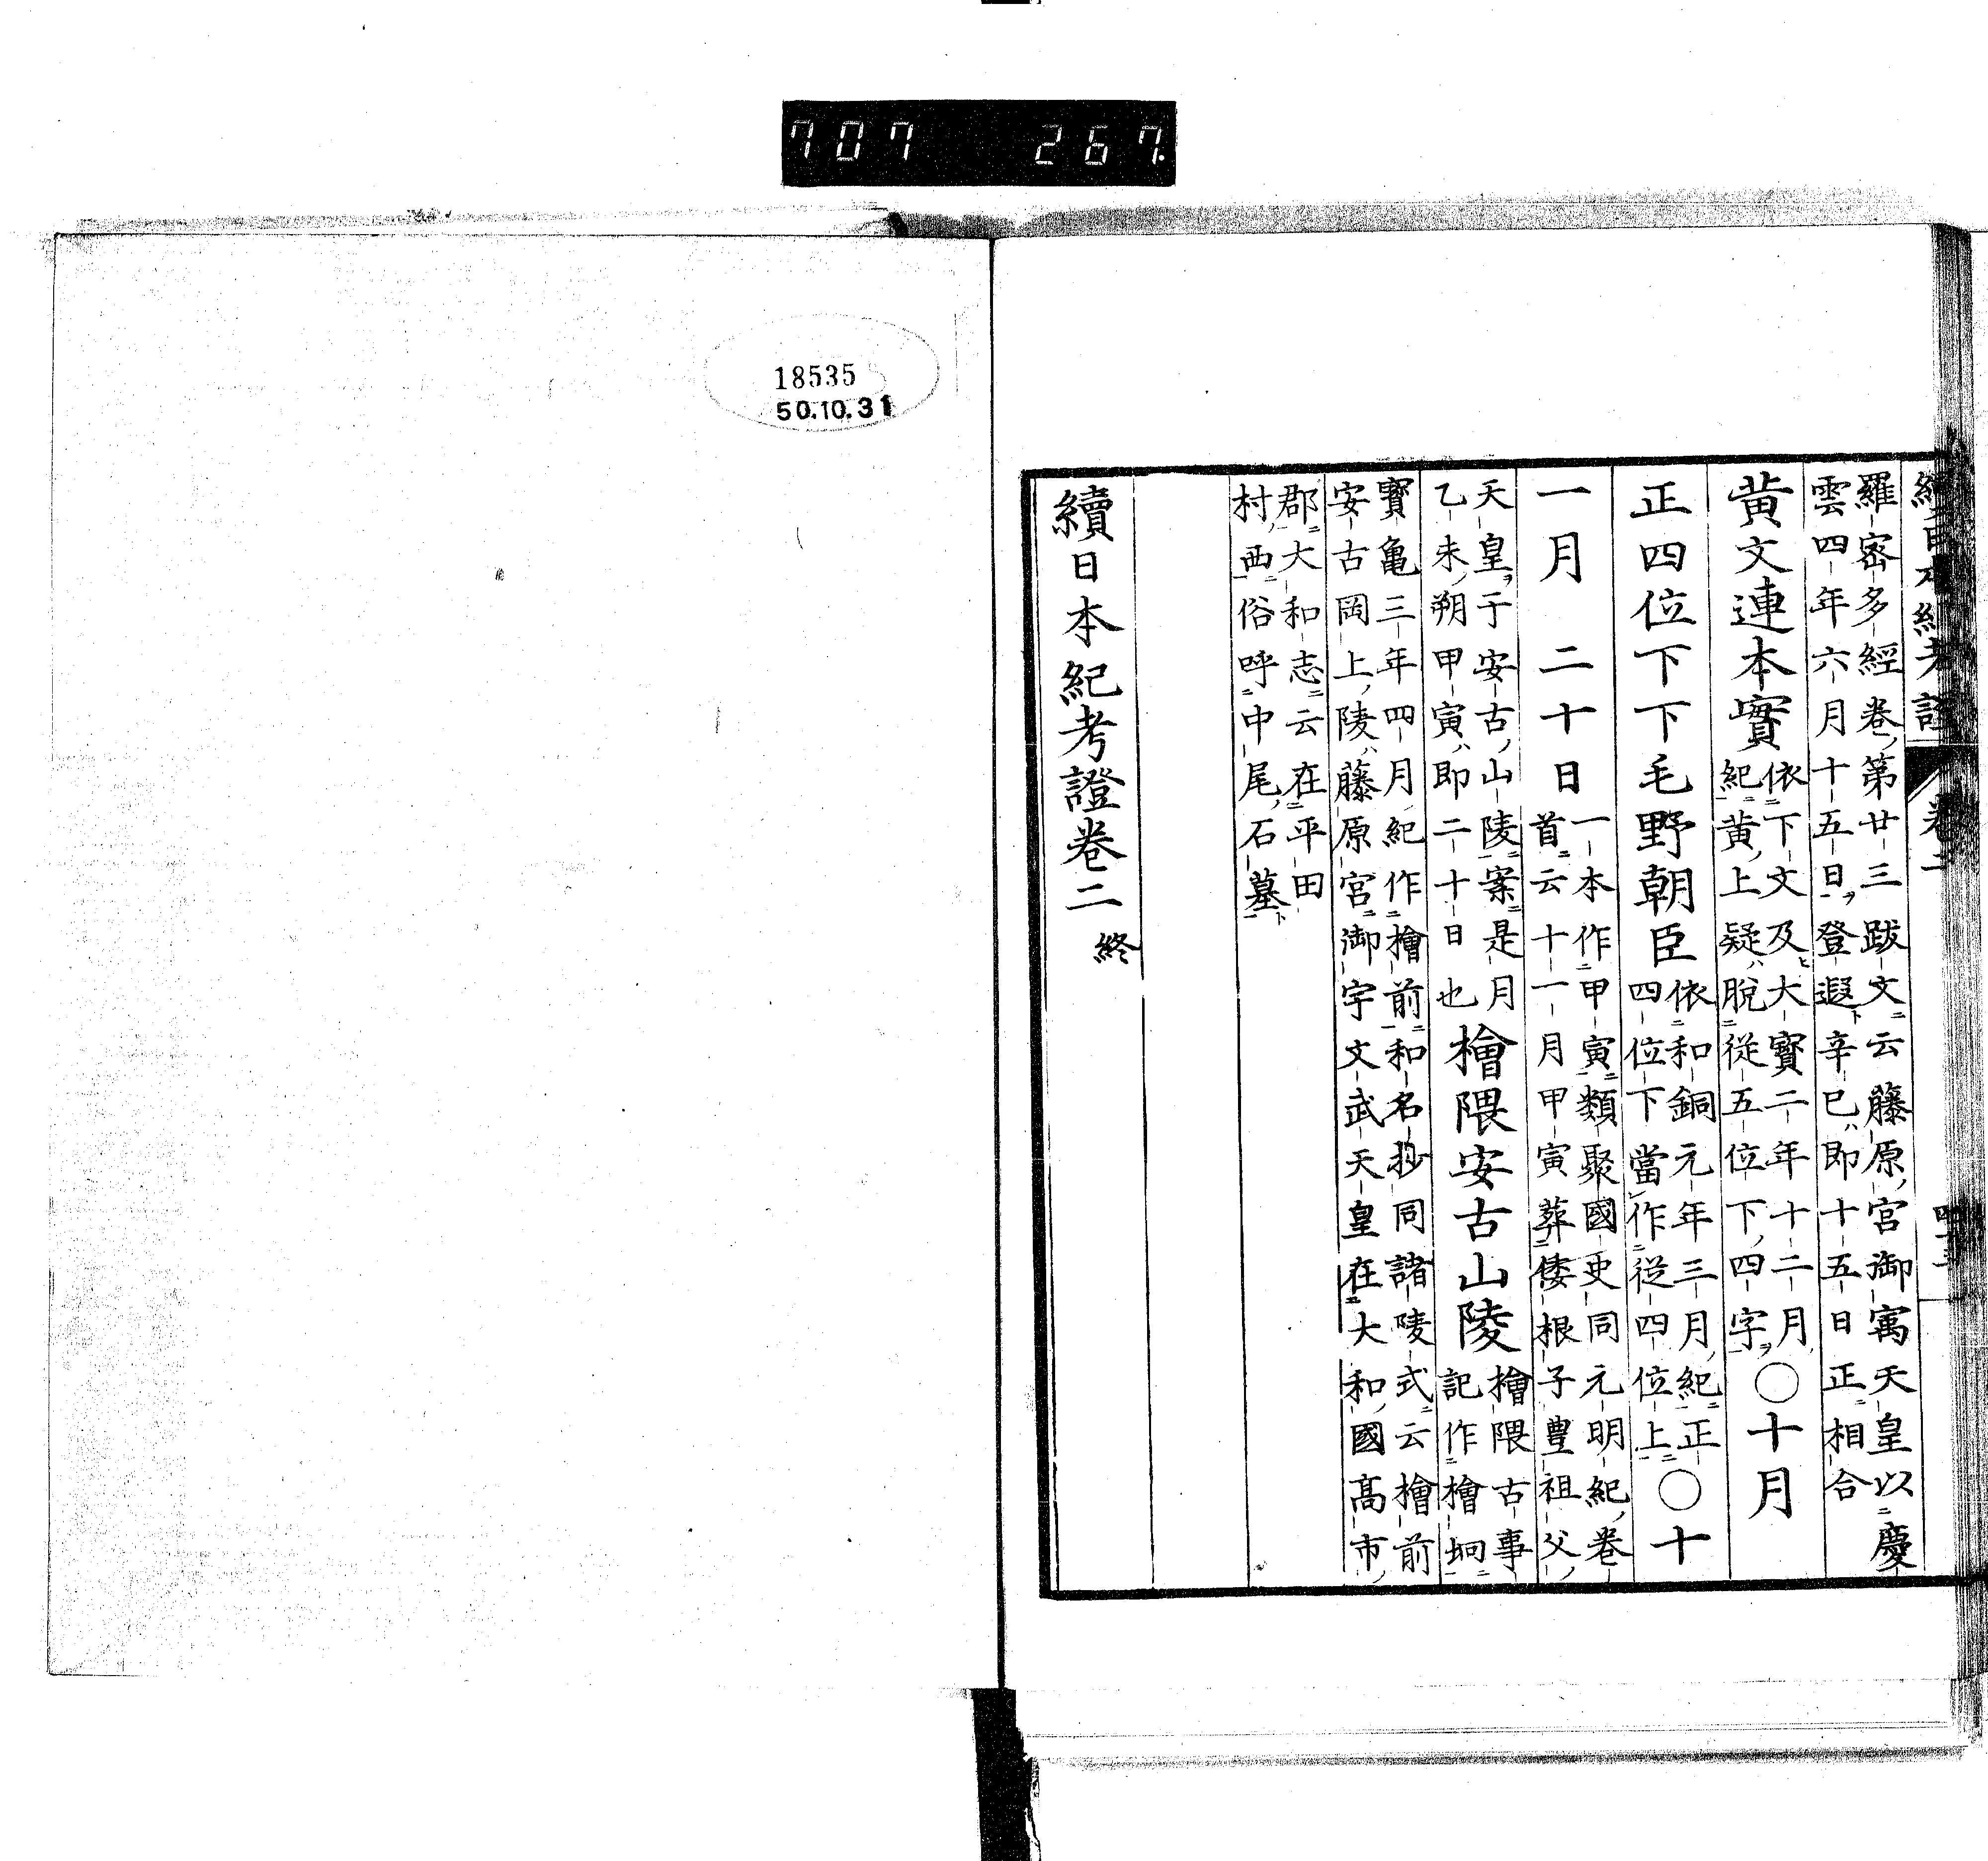 707 267
續日本紀考證 卷二
羅密多經卷第廿三跋文云藤原宮御寓天皇以慶
雲四年六月十五日登遐辛巳即十五日正相合
黃文連本實
依下文及大寶二年十二月
紀黃上疑脫從五位下四字
○十月
正四位下下毛野朝臣
依和銅元年三月紀正
四位下當作從四位上
○十
一月 二十日
一本作甲寅類聚國史同元明紀卷
首云十一月甲寅葬倭根子豊祖父
天皇于安古山陵案是月
乙未朔甲寅即二十日也
檜隈安古山陵
檜隈古事
記作檜坰
寶亀三年四月紀作檜前和名抄同諸陵式云檜前
安古岡上陵藤原宮御宇文武天皇在大和國高市
郡大和志云在平田
村西俗呼中尾石墓
續日本紀考證卷二終
18535
50.10.31